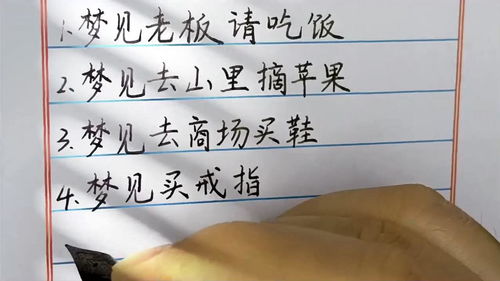 1.梦见老板请吃饭
2.梦见去山里摘苹果
3.梦见去商场买鞋
4.梦见买戒指